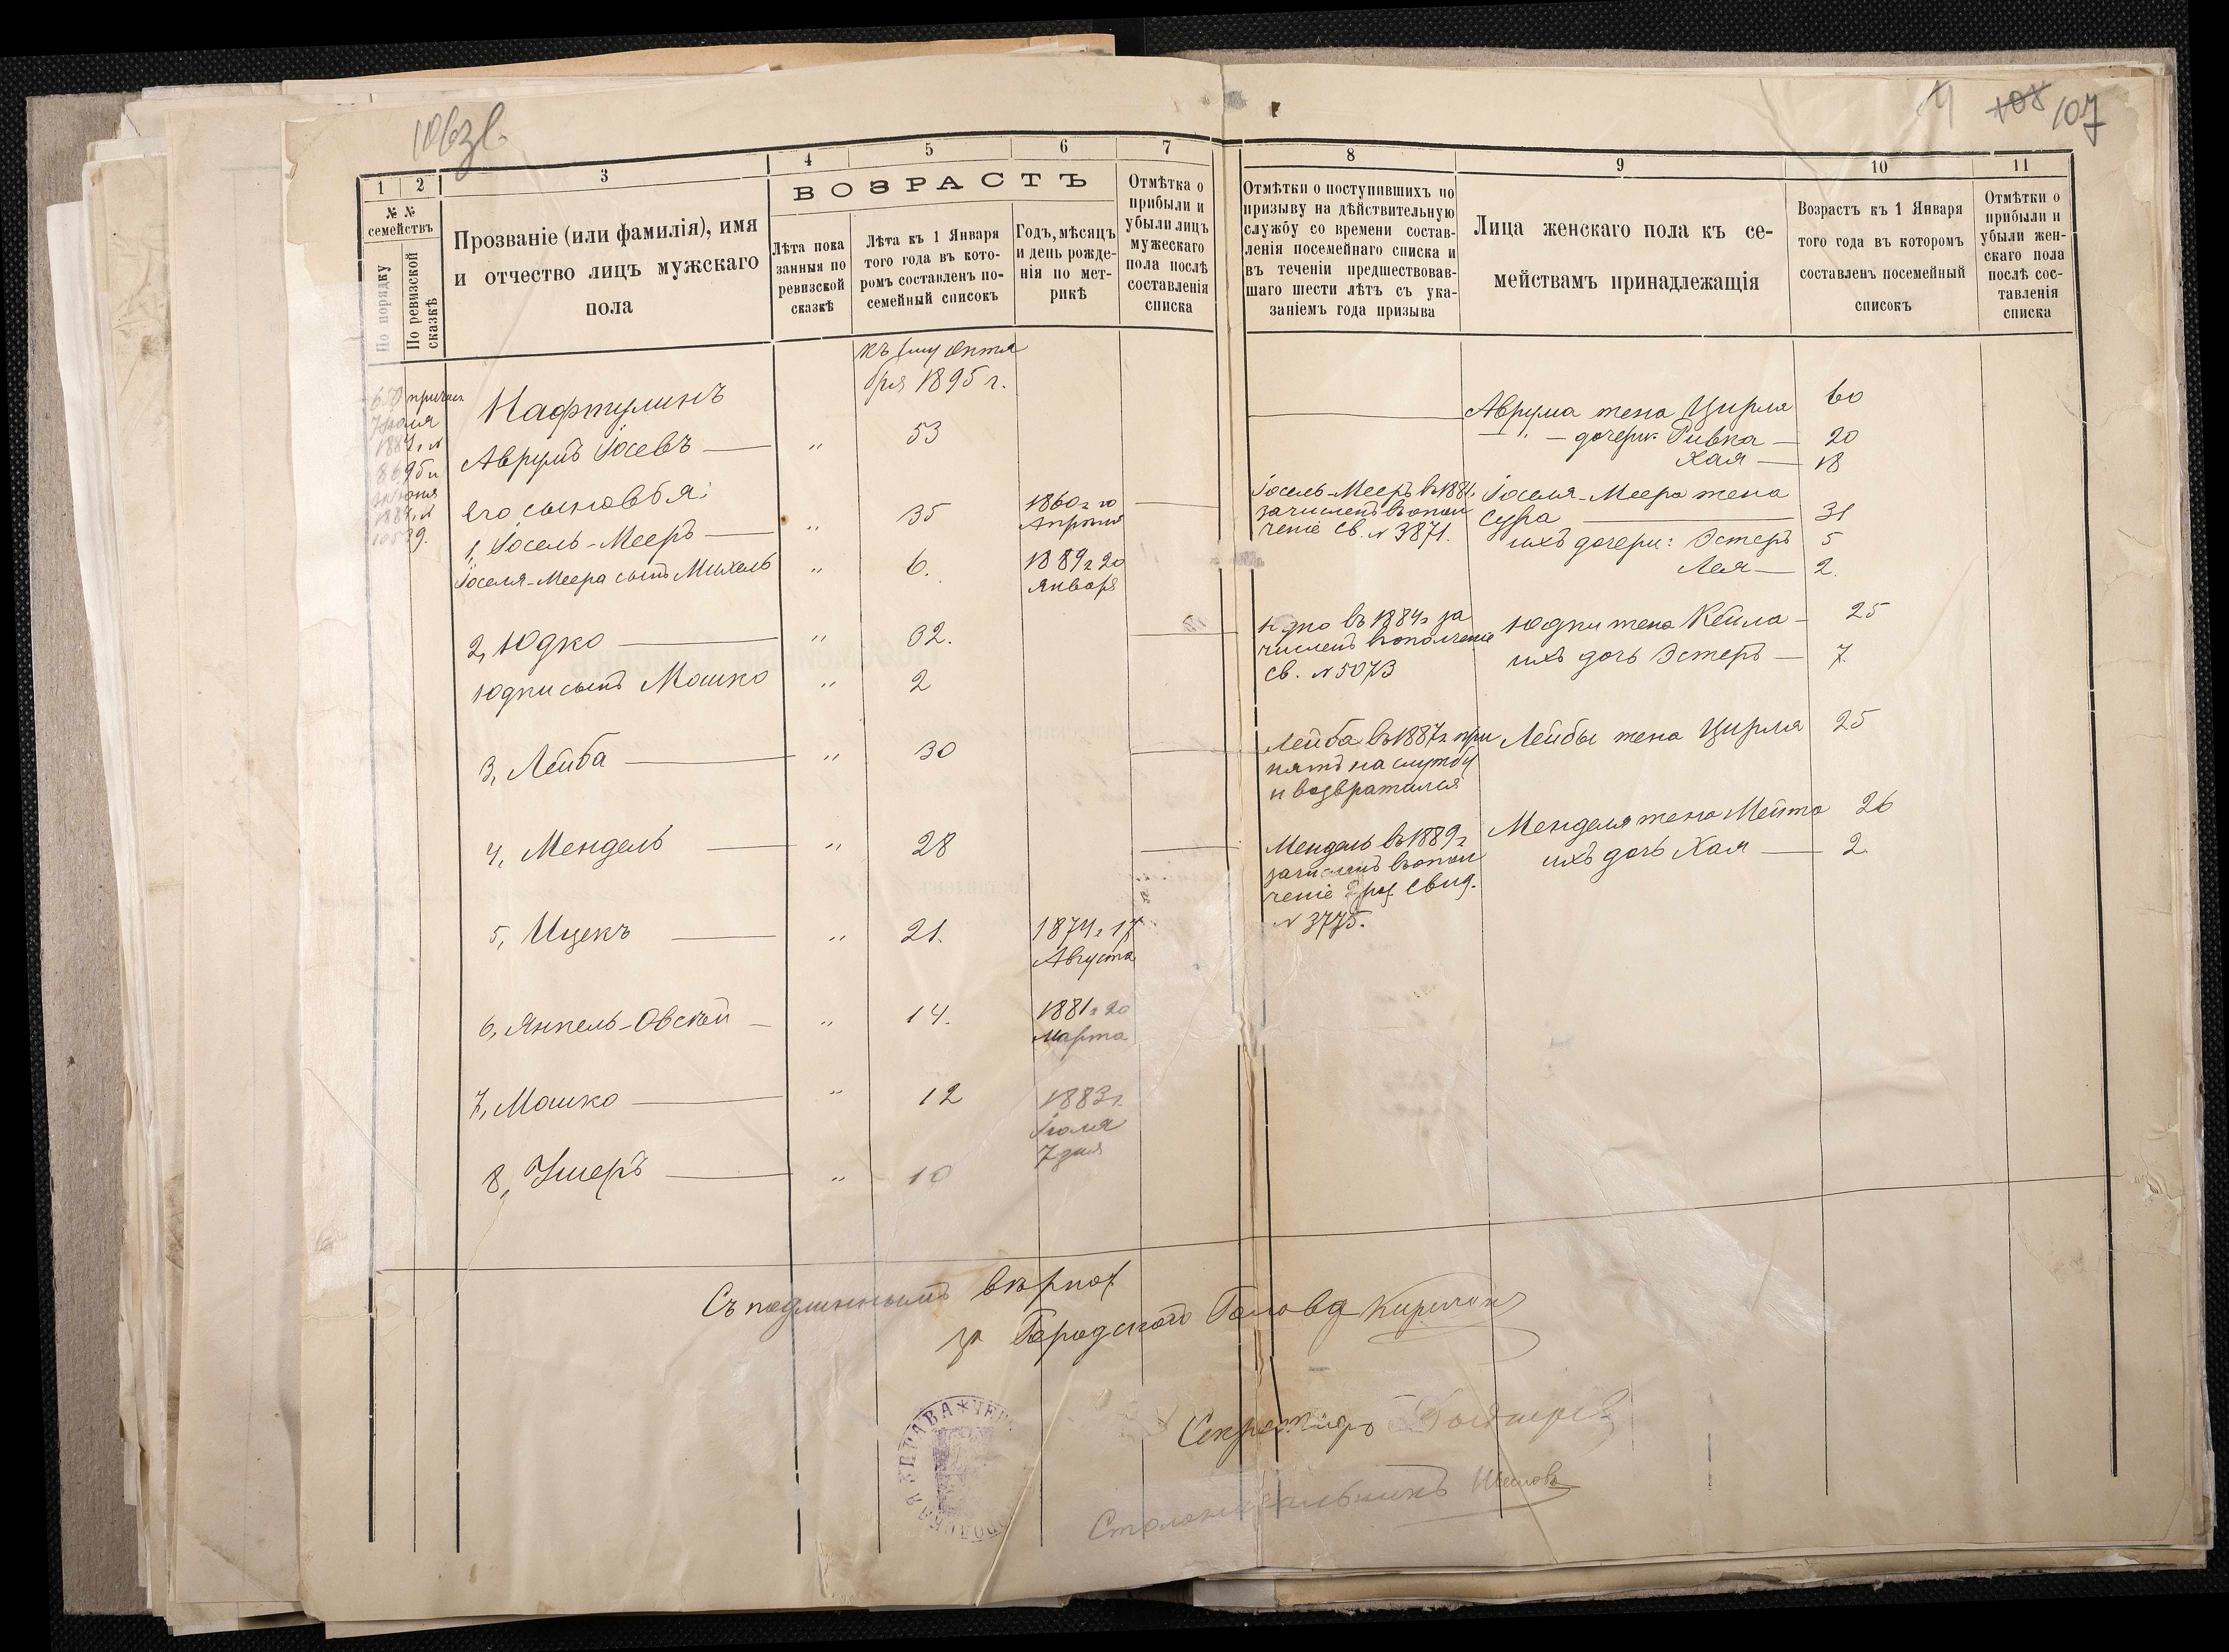 106 зв.
4 108 107
1 2 3 4 5 6 7
8 9 10 11
№ № семействъ
По порядку
По ревизской сказкѣ
Прозваніе (или фамилія), имя
и отчество лицъ мужскаго
пола
ВОЗРАСТЪ
Лѣта пока
занныя по
ревизской
сказкѣ
Лѣта къ 1 Января
того года въ кото-
ромъ составленъ по-
семейный списокъ
Годъ, мѣсяцъ
и день рожде-
нія по мет-
рикѣ
Отмѣтка о
прибыли и
убыли лицъ
мужескаго
пола послѣ
составленія
списка
Отмѣтки о поступившихъ по
призыву на дѣйствительную
службу со времени состав-
ленія посемейнаго списка и
въ теченіи предшествовав-
шаго шести лѣтъ съ ука-
заніемъ года призыва
Лица женскаго пола къ се-
мействамъ принадлежащія
Возрастъ къ 1 Января
того года въ которомъ
составленъ посемейный
списокъ
Отмѣтки о
прибыли и
убыли жен-
скаго пола
послѣ сос-
тавленія
списка
къ 1му Октя
бря 1895 г.
Нафтулинъ
Аврумъ Іосевъ — " 53
его сыновья:
1, Іосель-Мееръ — " 35 1860 г. 10
Апрѣля
Іоселя-Меера сынъ Михель " 6. 1889 г. 20
Января
2, Юдко — " 32.
Юдки сынъ Мошко " 2
3, Лейба — " 30
4, Мендель — " 28
5, Ицекъ — " 21. 1874 г. 17
Августа
6, Янкель-Овсѣй — " 14. 1881 г. 20
Марта
7, Мошко — " 12 1883 г.
Іюля
7 дня
8, Ушеръ — " 10
Аврума жена Цирля 60
— " — дочери: Ривка — 20
Хая — 18
Іосель-Мееръ въ 1881 г.
зачисленъ въ опол
ченіе св. № 3871.
Іоселя-Меера жена
Сура — 31
ихъ дочери: Эстеръ 5
Лея — 2.
Юдко въ 1884 г. за
численъ въ ополченіе
св. № 5073
Юдки жена Кейла — 25
ихъ дочь Эстеръ — 7.
Лейба въ 1887 г. при
нятъ на службу
и возвратился
Лейбы жена Цирля 25
Мендель въ 1889 г.
зачисленъ въ опол
ченіе свид.
№ 3775.
Менделя жена Мейта 26
ихъ дочь Хая — 2.
Съ подлиннымъ вѣрно:
за Городского Голову
Секретарь
Столоначальникъ
УПРАВА * ЧЕР